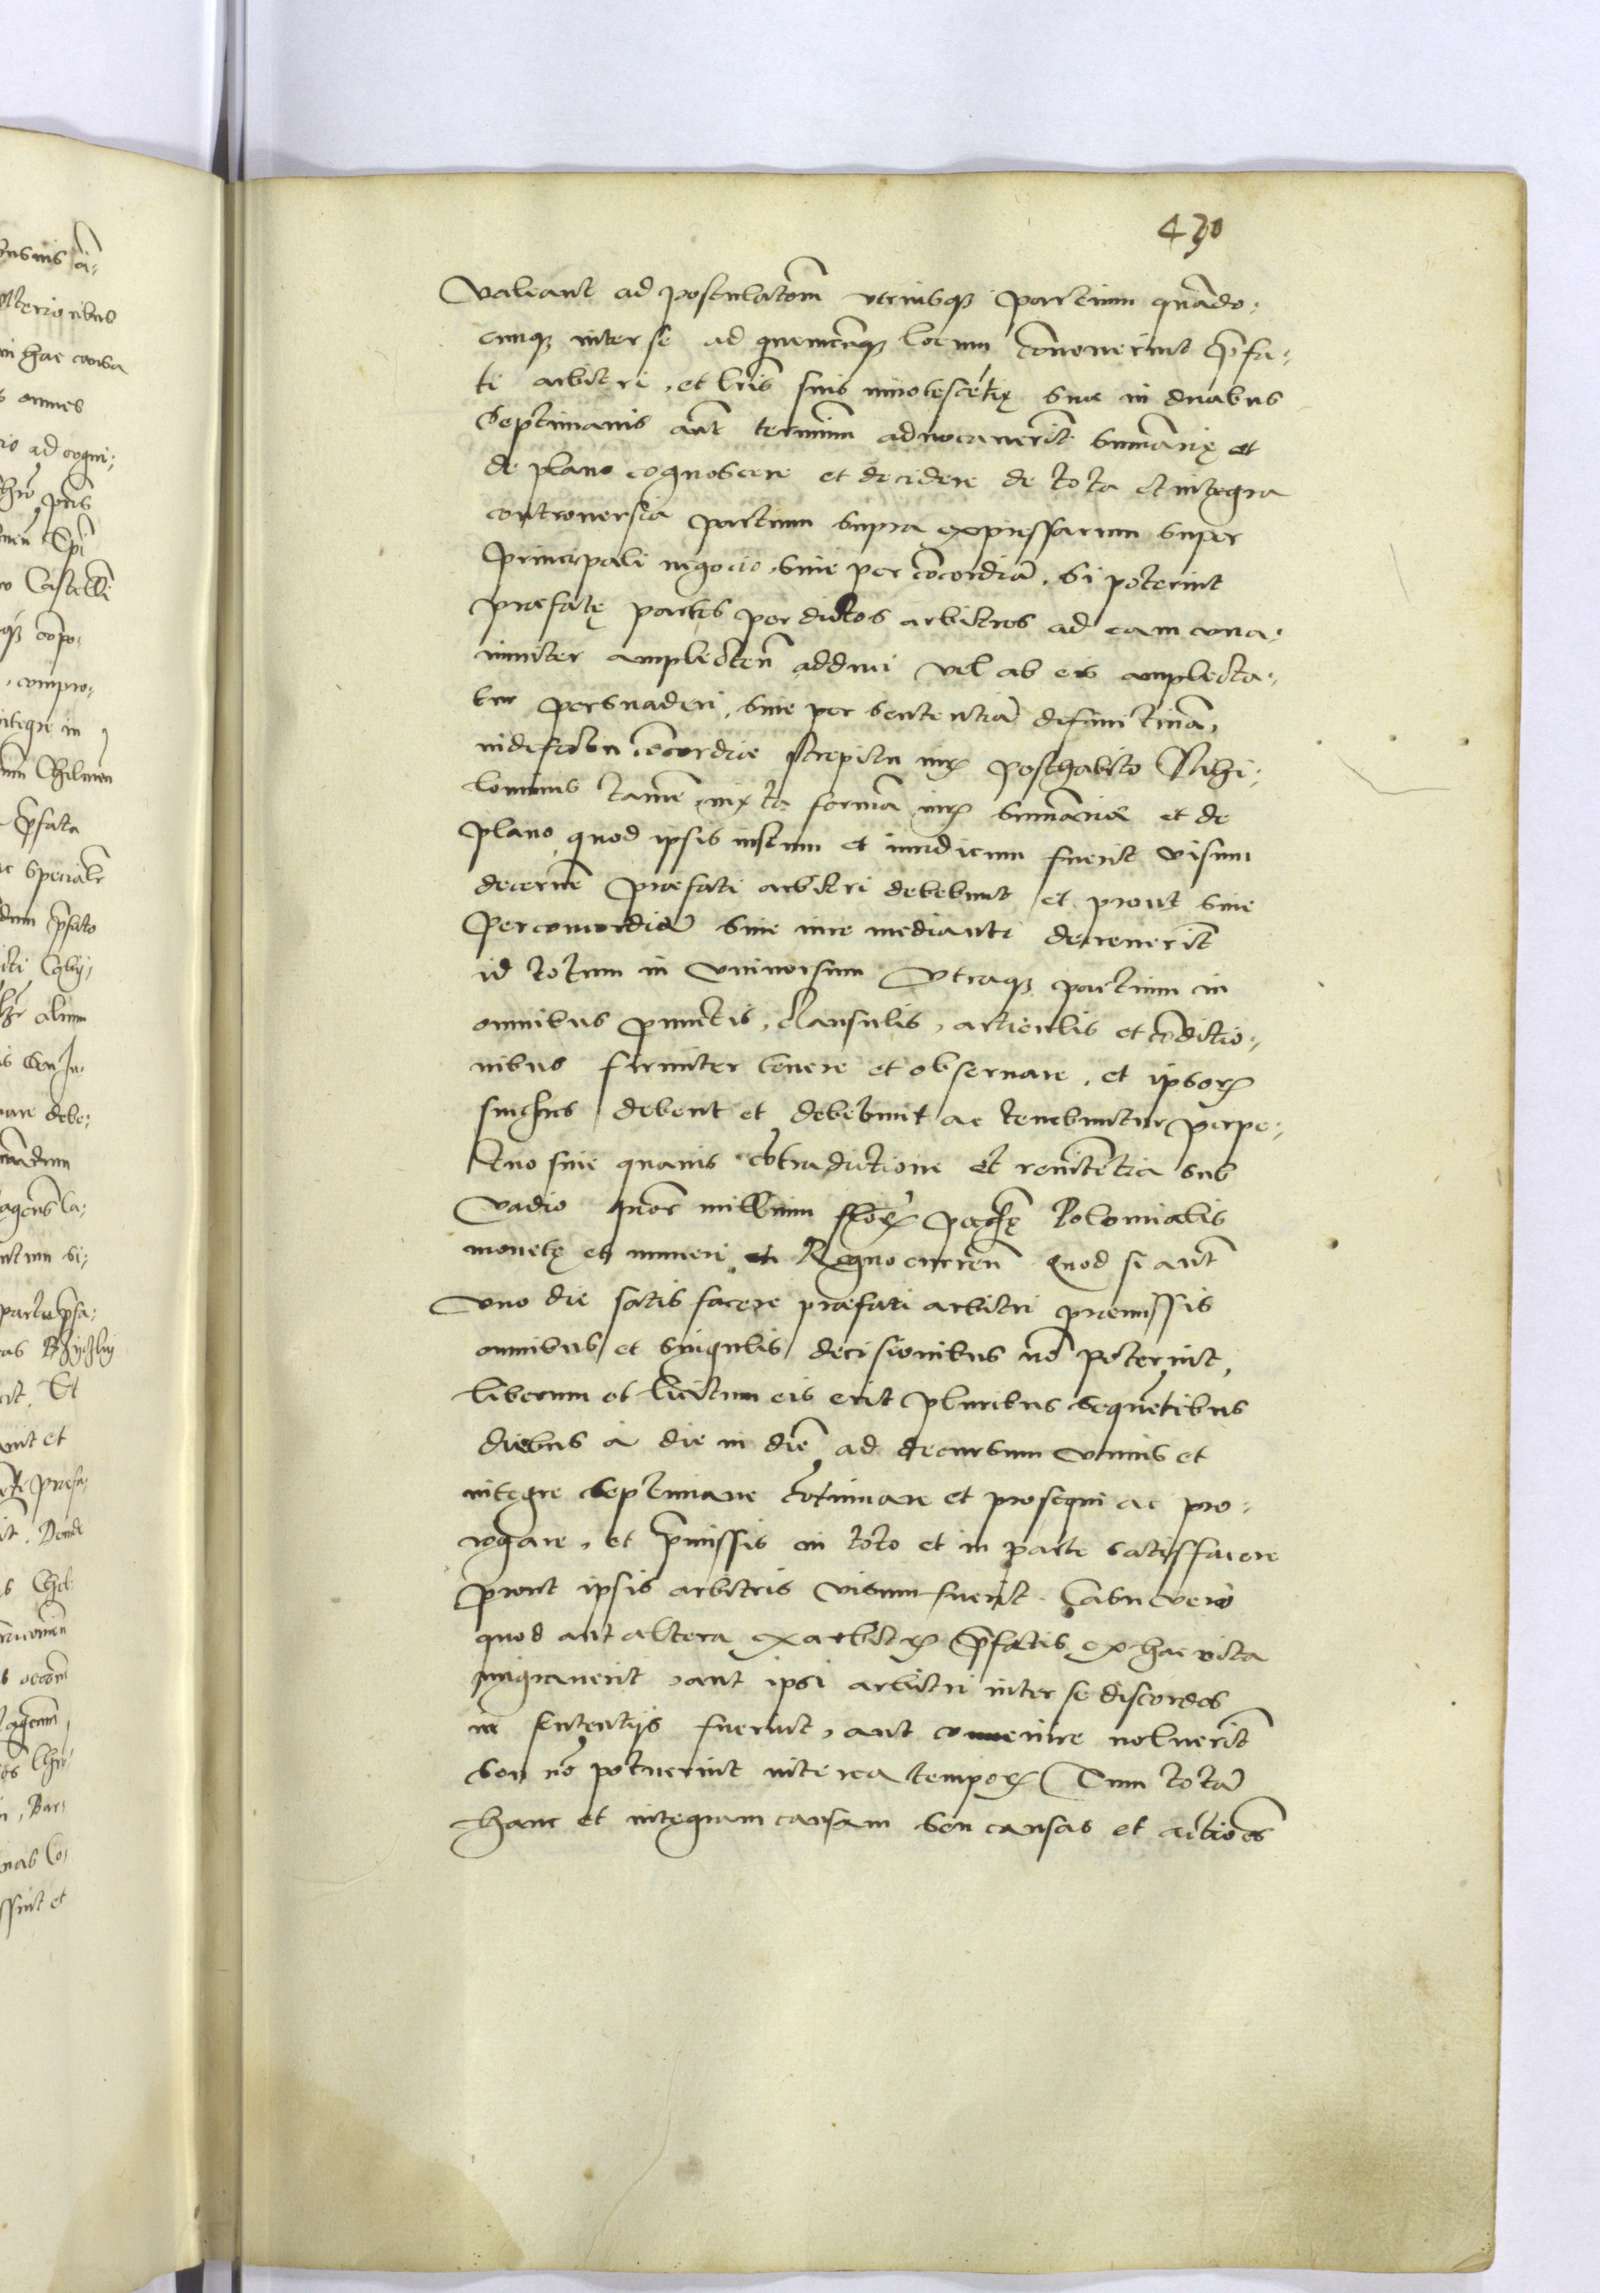 430
valeant ad postulatom̃ utriusq3 partium quãdo-
cunq3 inter se ad quemcũq3 locum cõvenerint p̃fa-
ti arbitri, et lr̃is suis innotescẽtię sive in duabus
septimanis ãnt terminũ advocaverĩt summãrię et
de plano cognoscere et decidere de tota et integra
controversia partium supra expressarum super
principali negocio, sive per cõcordiã, si poterint
præfatę partes per dictos arbitros ad eam una-
nimiter amplecten̄ adduci vel ab eis amplecta-
tur persuaderi, sive per sententiã definitivã,
in defectu cõcordiæ strepitu iur̃ posthabito Nihi-
lominus tamẽ iuxta formã iur̃ summãriæ et de
plano, quod ipsis iustum et iuridicum fuerit visum
decernere præfati arbitri debebunt, et prout sive
per concordiã sive iure mediante decreverĩt
id totum in universum utraq3 partium in
omnibus punctis, clausulis, articulis et cõditio-
nibus firmiter tenere et observare, et ipsor̃
succ̃s debent et debebunt ac tenebuntur perpe-
tuo sine quavis cõtradictione et renitẽtia sub
vadio millium flor̃ Polonicalis
monetę et numeri in Regno curren̄ Quod si aut̃
uno die satisfacere præfati arbitri præmissis
omnibus et singulis decisionibus nõ poterint,
liberum et licitum eis erit pluribus sequẽtibus
diebus à die in diẽ ad decursum unius et
integre septimane cõtinuare et prosequi ac pro-
rogare, et p̃missis in toto et in parte satisffacere
prout ipsis arbitris visum fuerit. Casu vero
quod aut altera ex arbitr̃ p̃fatis ex hac vita
migraverit, aut ipsi arbitri inter se discordes
in sententijs fuerint, aut convenire noluerĩt
seu nõ potuerint interea tempor̃ Tum totã
hanc et integram causam seu causas et actiões